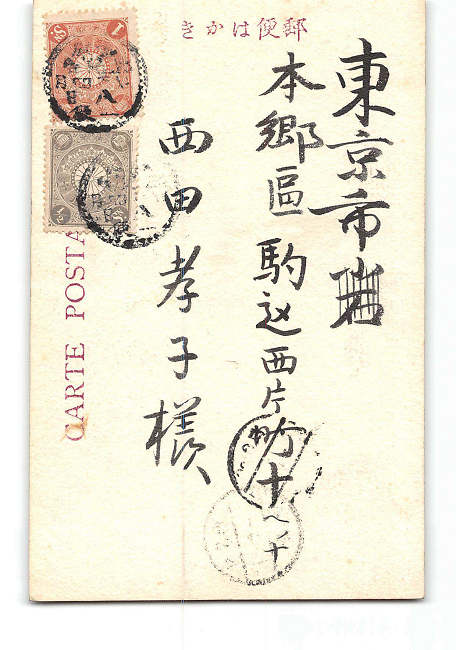 郵便はかき
東京市
本郷區駒込西片町十ヘノ十
西田孝子様
CARTE POSTA